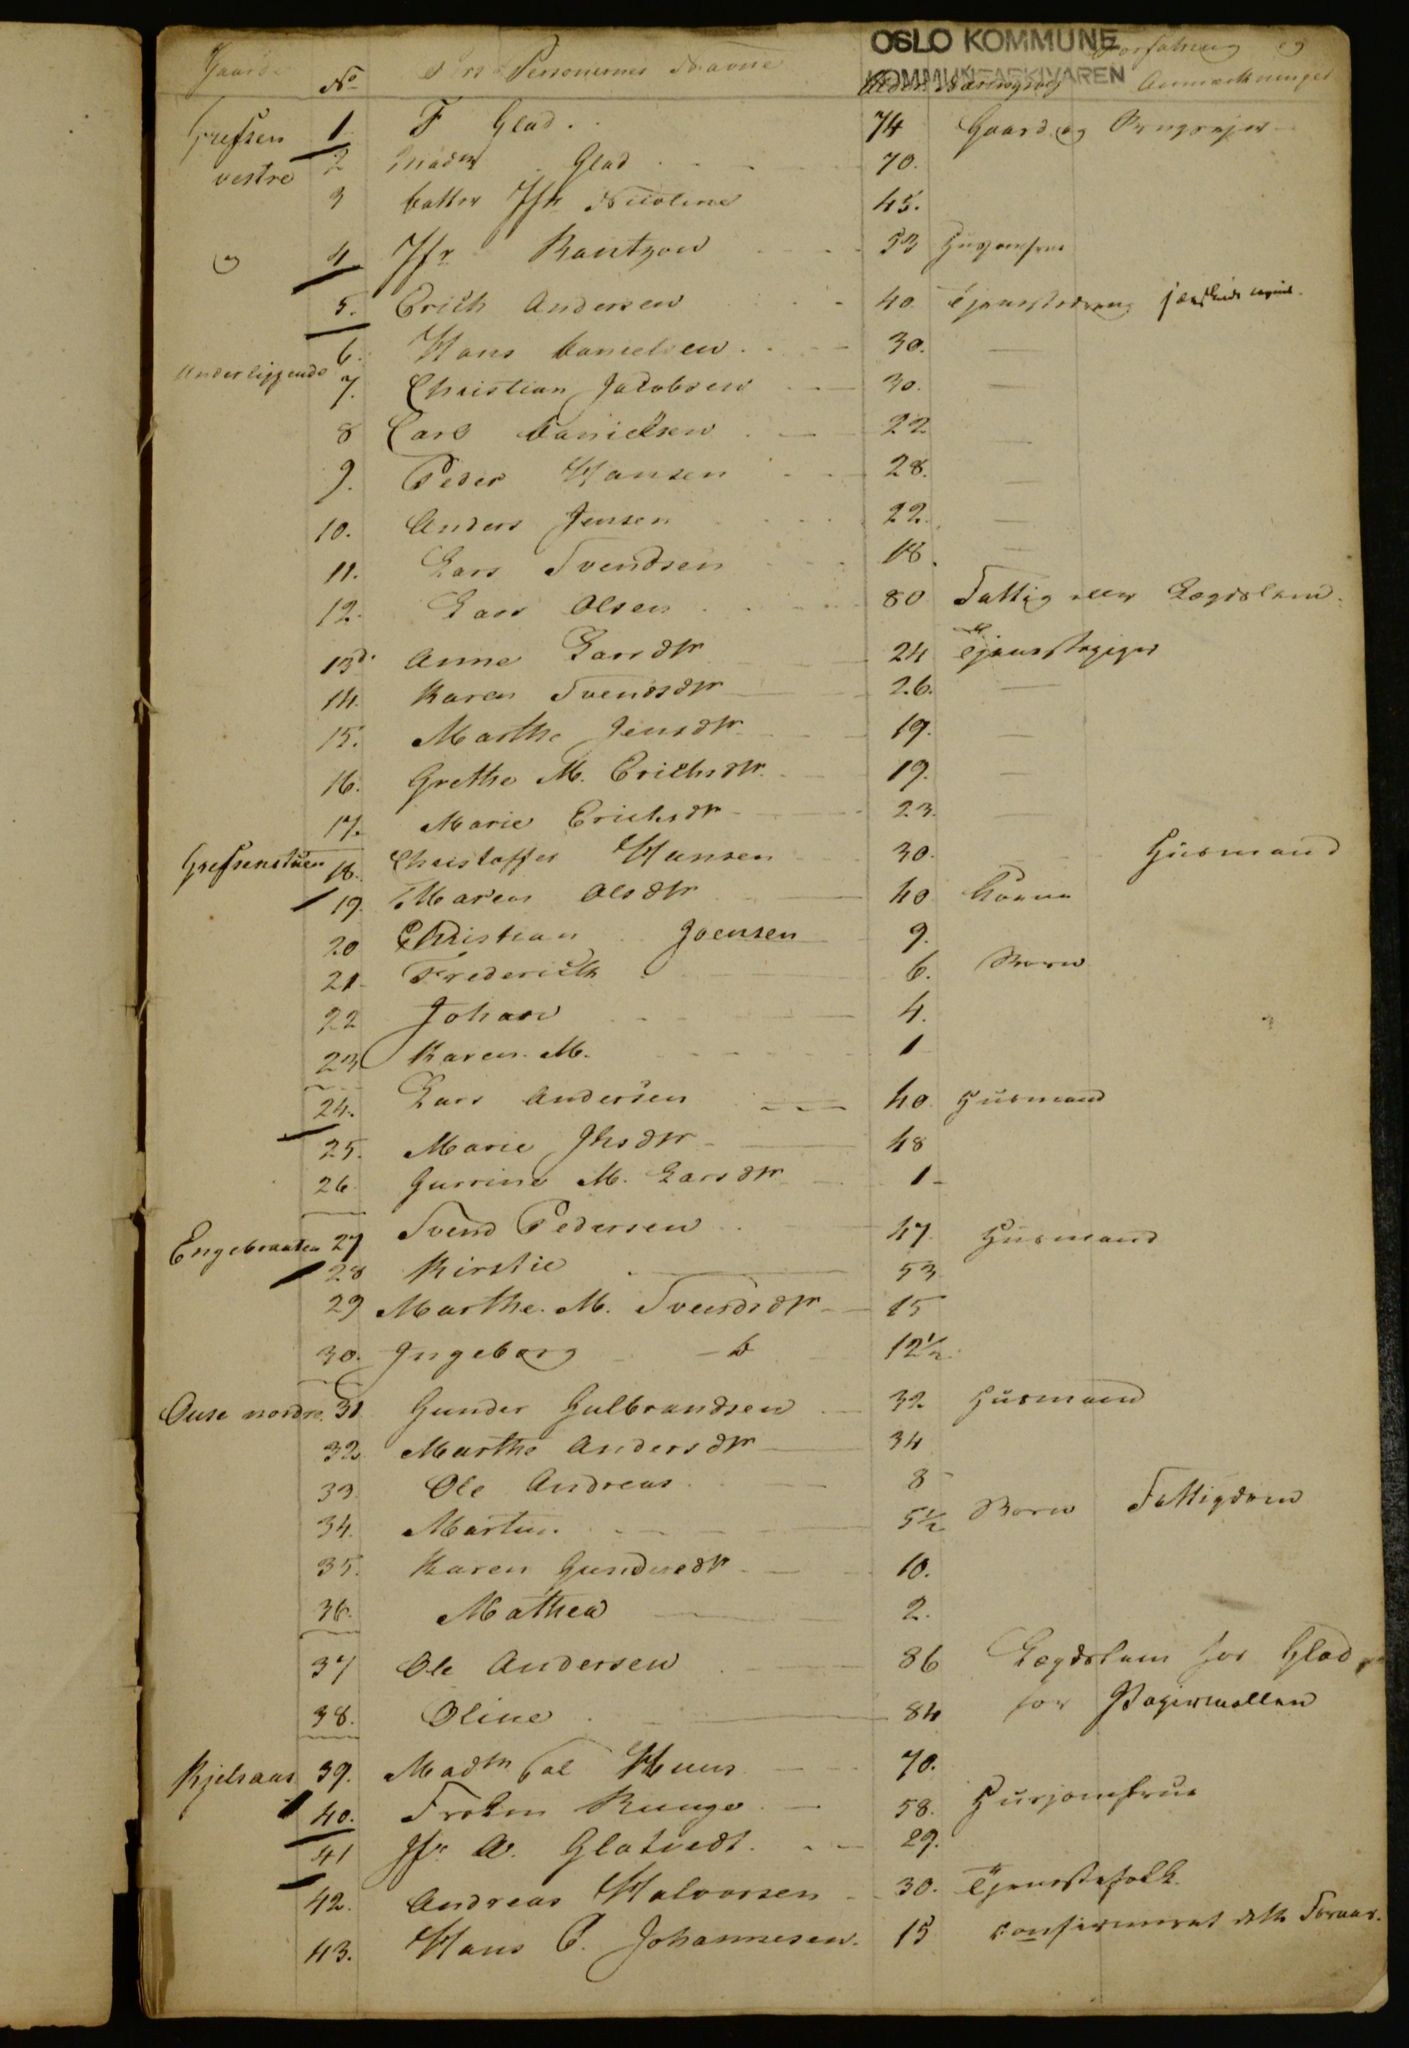 OSLO KOMMUNE
KOMMUNEARKIVAREN
Gaard No Personernes Navne Alder Næringsvei og Anmærkninger
Grefsen 1 F Glad. 74 Gaard og Brugsejer
vestre 2 Madm Glad 70.
3 Datter Jfr Nicoline 45.
og 4 Jfr Rantzow 53
5. Erich Andersen 40. Tjenestedreng
6. Hans Danielsen 30. —
Underliggende 7. Christian Jacobsen 30. —
8 Carl Danielsen 22 —
9. Peder Hansen 28. —
10. Anders Jensen 22. —
11. Lars Svendsen 18. —
12. Lars Olsen 80 Fattig eller Lægdslem.
13 Anne Larsdtr 24 Tjenestepiger
14. Karen Svendsdtr 26. —
15. Marthe Jensdtr 19. —
16. Grethe M. Erichsdtr. 19. —
17. Marie Erichsdtr 23. —
Grefsenstuen 18. Christoffer Hansen 30. Huusmand
19. Maren Olsdtr 40 Kone
20 Christian Joensen 9.
21 Frederich 6. Børn
22 Johan 4.
23 Karen M. 1
24. Lars Andersen 40 Huusmand
25. Marie Jhsdtr 48
26 Gurrine M. Larsdtr 1
Engebraaten 27 Svend Pedersen 47 Huusmand
28 Kirstie 53
29 Marthe M. Svendsdtr 15
30. Ingeborg 12½
Ouse nordre 31 Gunder Gulbrandsen 32 Huusmand
32 Marthe Andersdtr 34
33 Ole Andreas 8
34. Martin 5½ Børn Fattigdom
35. Karen Gundersdtr 10.
36. Mathea 2.
37 Ole Andersen 86 Lægdslem for Glad
38. Oline 84 for Papirmøllen
Kjelsaas 39. Madm Sal Huus 70.
40. Frøken Runge 58. Huusjomfrue
41 Jfr A. Glatvedt. 29.
42. Andreas Halvorsen 30. Tjenestefolk
43. Hans P. Johannesen. 15 confirmeret dette Foraar.